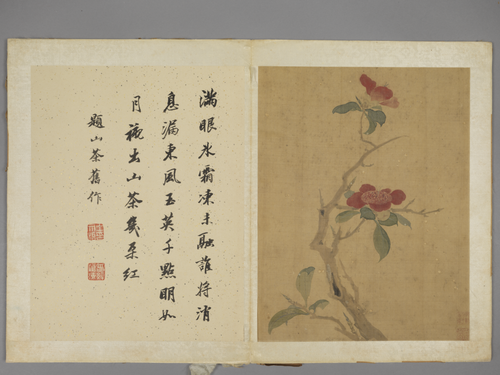 满眼氷霜凍未融誰将消
息漏東風玉英千點明如
月襯出山茶幾朶紅
題山茶舊作